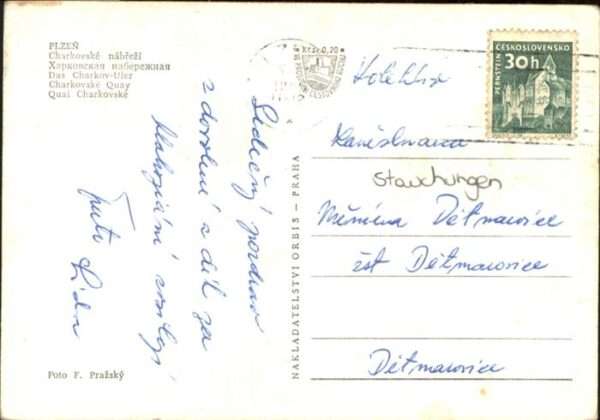 PLZEŇ
Charkovské nábřeží
Харковская набережная
Das Charkov-Ufer
Charkovské Quay
Quai Charkovské
Srdečný pozdrav
z dovolené a dík za
blahopřání
Lída
Foto F. Pražský
NAKLADATELSTVÍ ORBIS — PRAHA
Kčs 0,20
ČESKOSLOVENSKO
30h
PERNŠTEJN
Kolektiv
Stauchungen
Dětmarovice
žst Dětmarovice
Dětmarovice